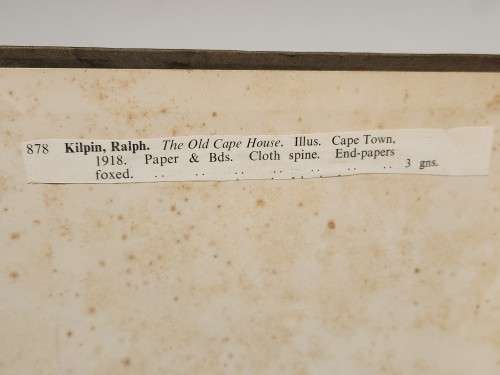 878 Kilpin, Ralph. The Old Cape House. Illus. Cape Town,
1918. Paper & Bds. Cloth spine. End-papers
foxed. .. .. .. .. .. .. .. 3 gns.